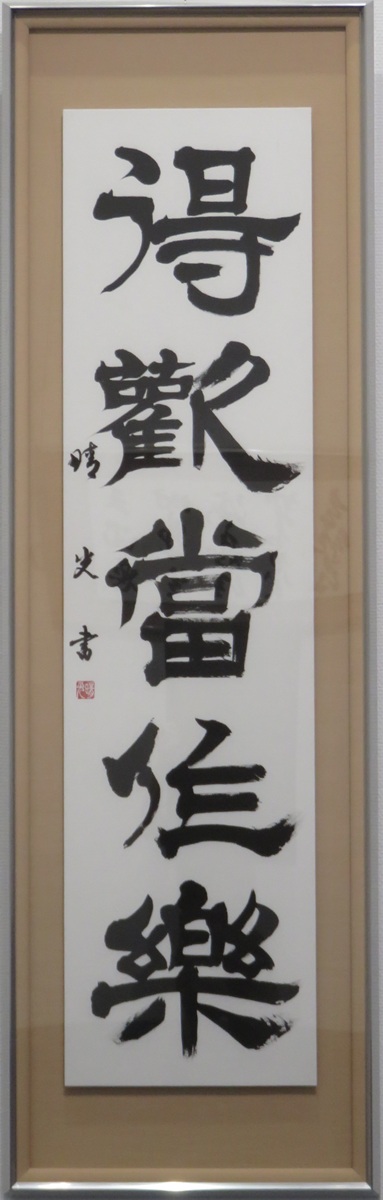 得歡當作樂
晴光書